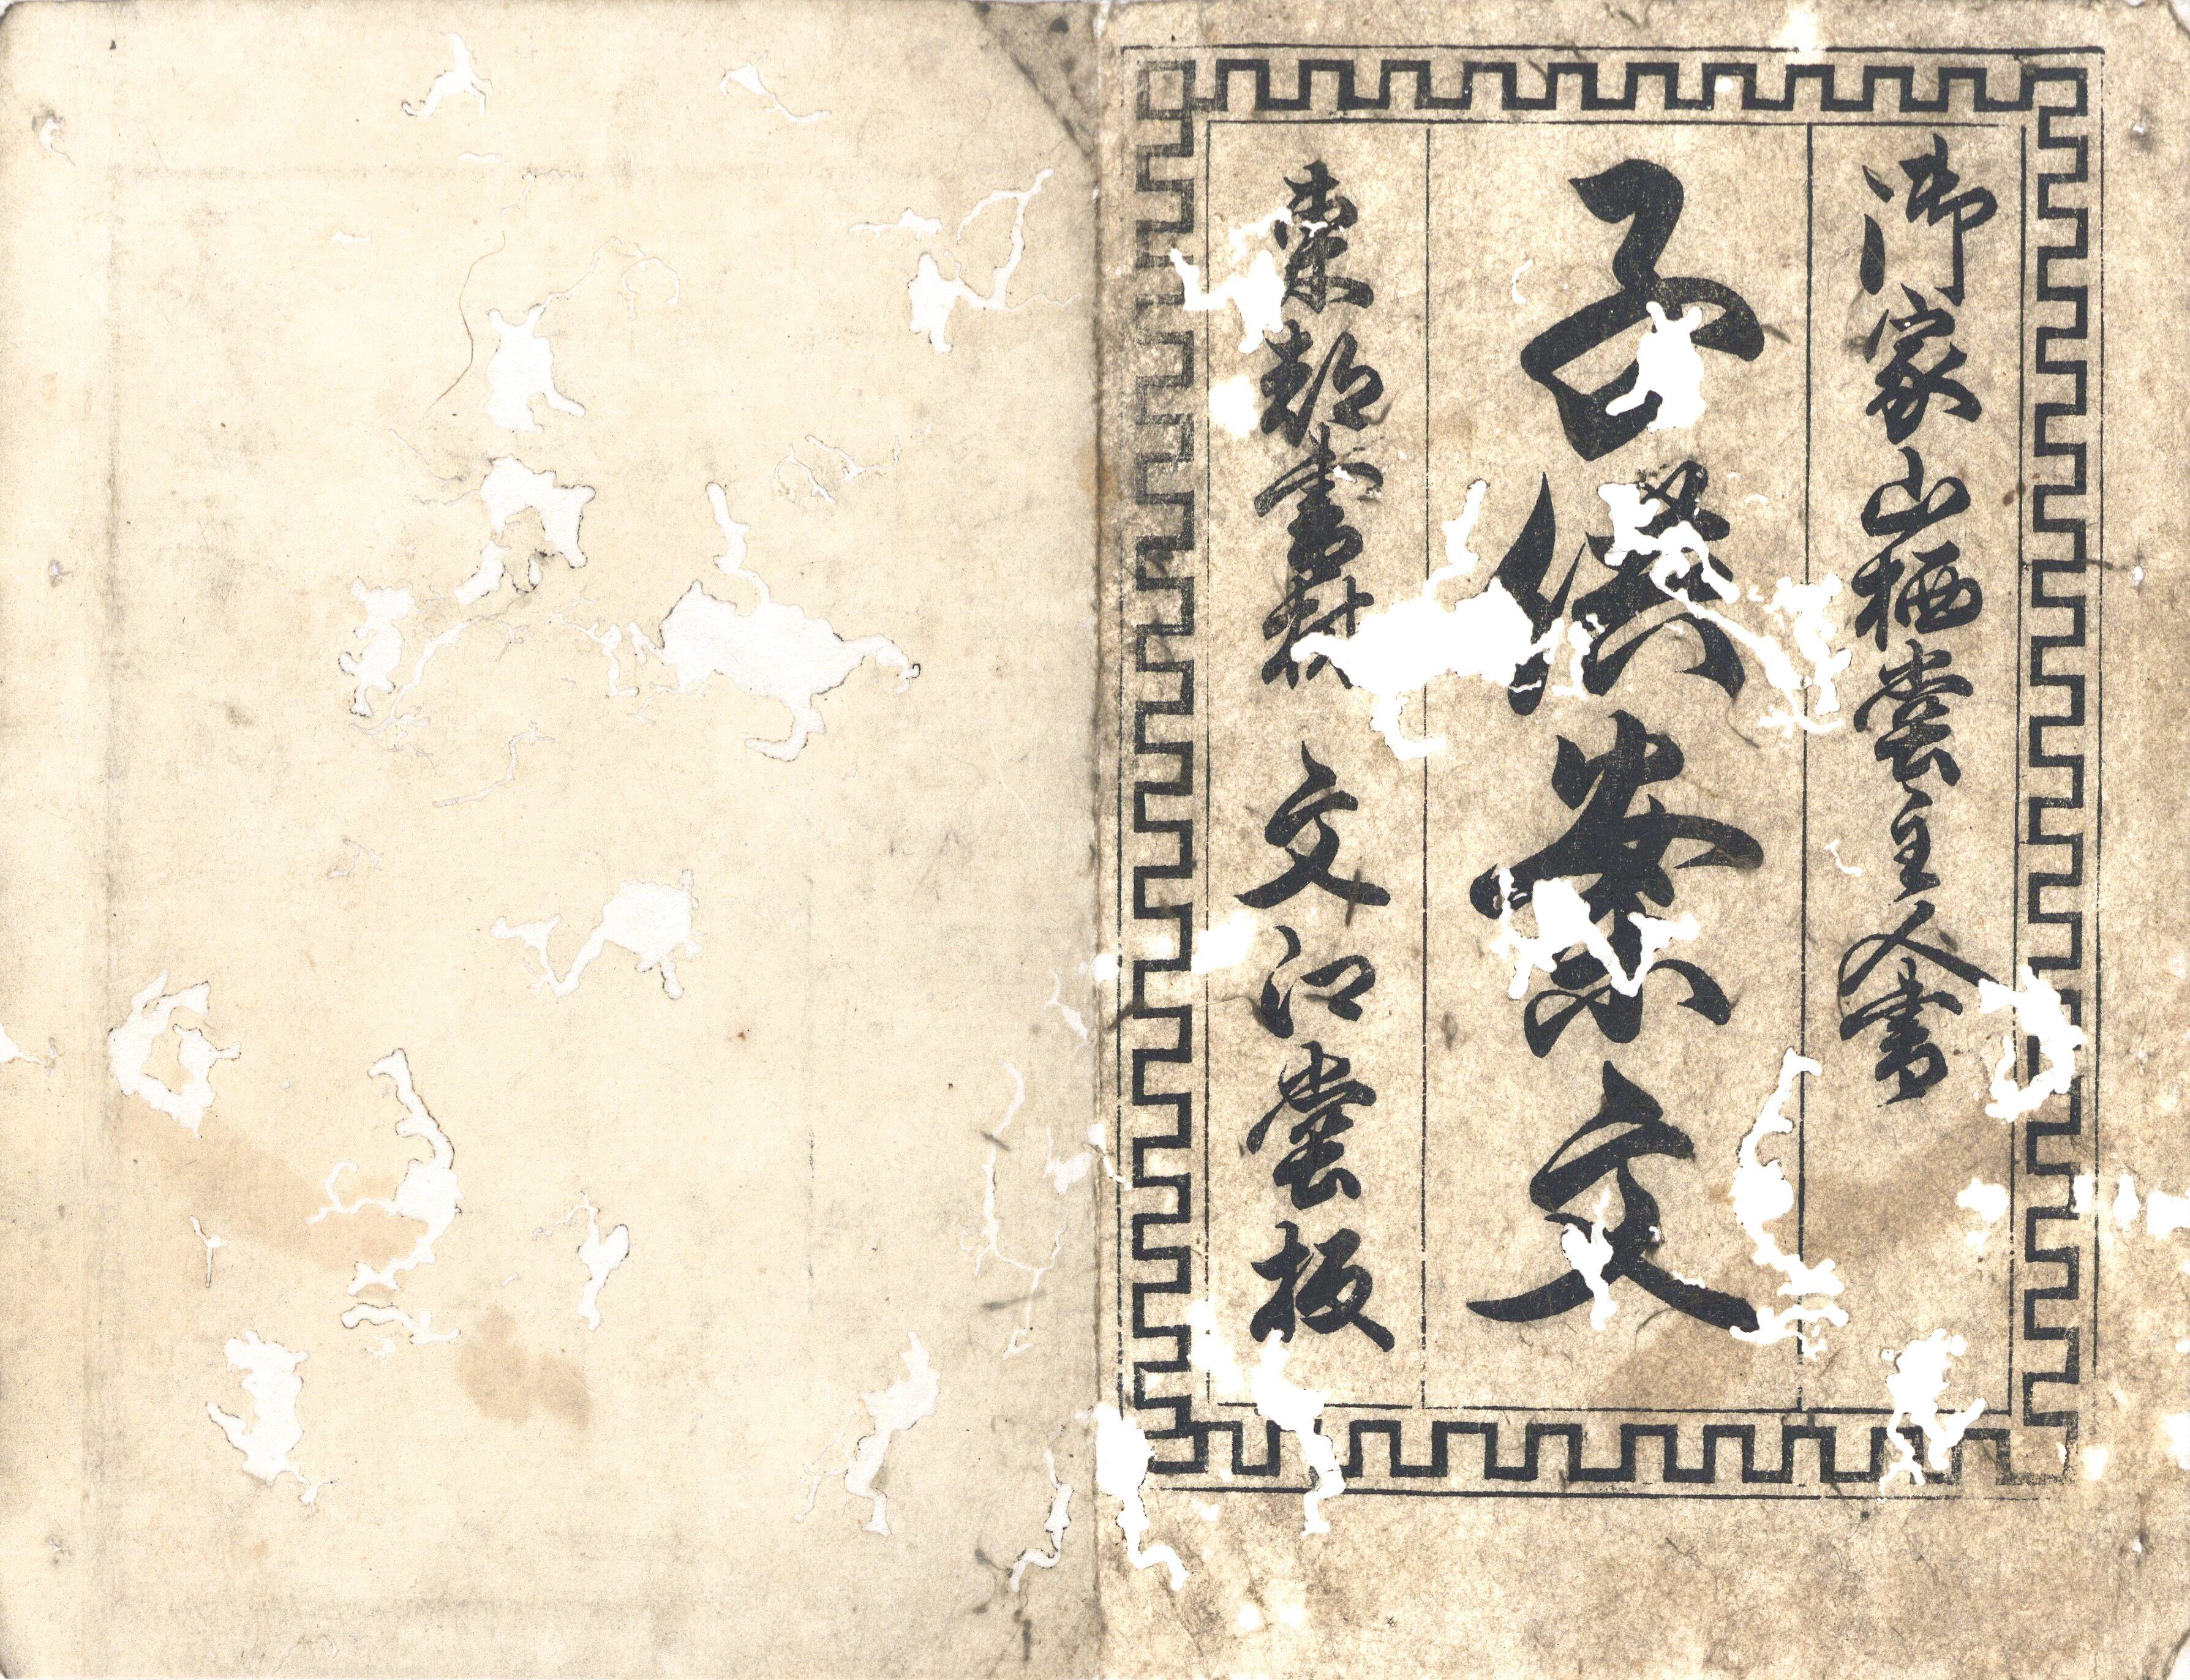 御家山栖堂主人書
子供案文
東都書林 文江堂板